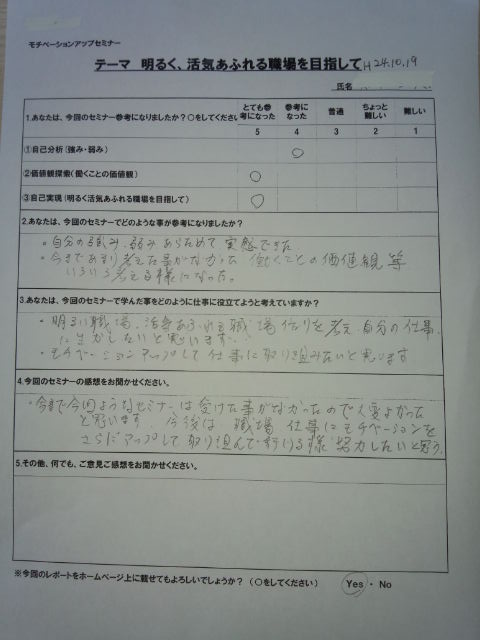 モチベーションアップセミナー
テーマ 明るく、活気あふれる職場を目指して H24.10.19
氏名
1.あなたは、今回のセミナー参考になりましたか?○をしてください
とても参考になった 参考になった 普通 ちょっと難しい 難しい
5 4 3 2 1
①自己分析(強み・弱み) ○
②価値観探索(働くことの価値観) ○
③自己実現(明るく活気あふれる職場を目指して) ○
2.あなたは、今回のセミナーでどのような事が参考になりましたか?
・自分の強み、弱みあらためて実感できた
・今まであまり考えた事がなかった 働くことの価値観 等
いろいろ考える様になった。
3.あなたは、今回のセミナーで学んだ事をどのように仕事に役立てようと考えていますか?
・明るい職場、活気あふれる職場作りを考え、自分の仕事
に生かしたいと思います。
・モチベーションアップして仕事に取り組みたいと思います
4.今回のセミナーの感想をお聞かせください。
・今まで今回ようなセミナーは受けた事がなかったので大変よかった
と思います。今後は職場 仕事にモチベーションを
さらにアップして取り組んで行ける様 努力したいと思う。
5.その他、何でも、ご意見ご感想をお聞かせください。
※今回のレポートをホームページ上に載せてもよろしいでしょうか?(○をしてください) Yes ・ No